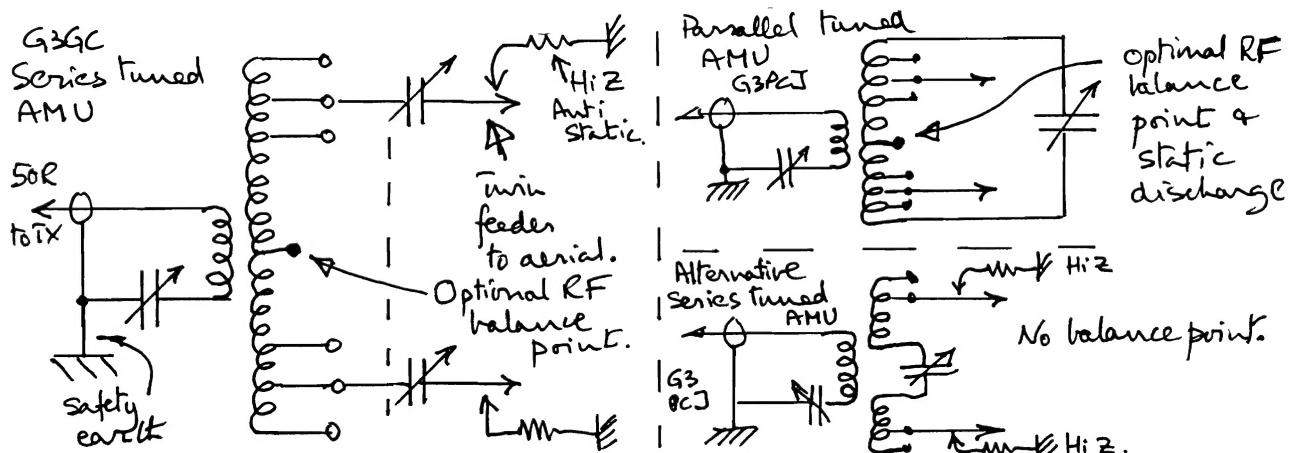 G3GC
Series tuned
AMU
50R
to TX
Safety
earth
HiZ
Anti
Static.
Twin
feeder
to aerial.
Optional RF
balance
point.
Parallel tuned
AMU
G3PCJ
Optimal RF
balance
point &
static
discharge
Alternative
series tuned
AMU
G3
PCJ
HiZ
No balance point.
HiZ.